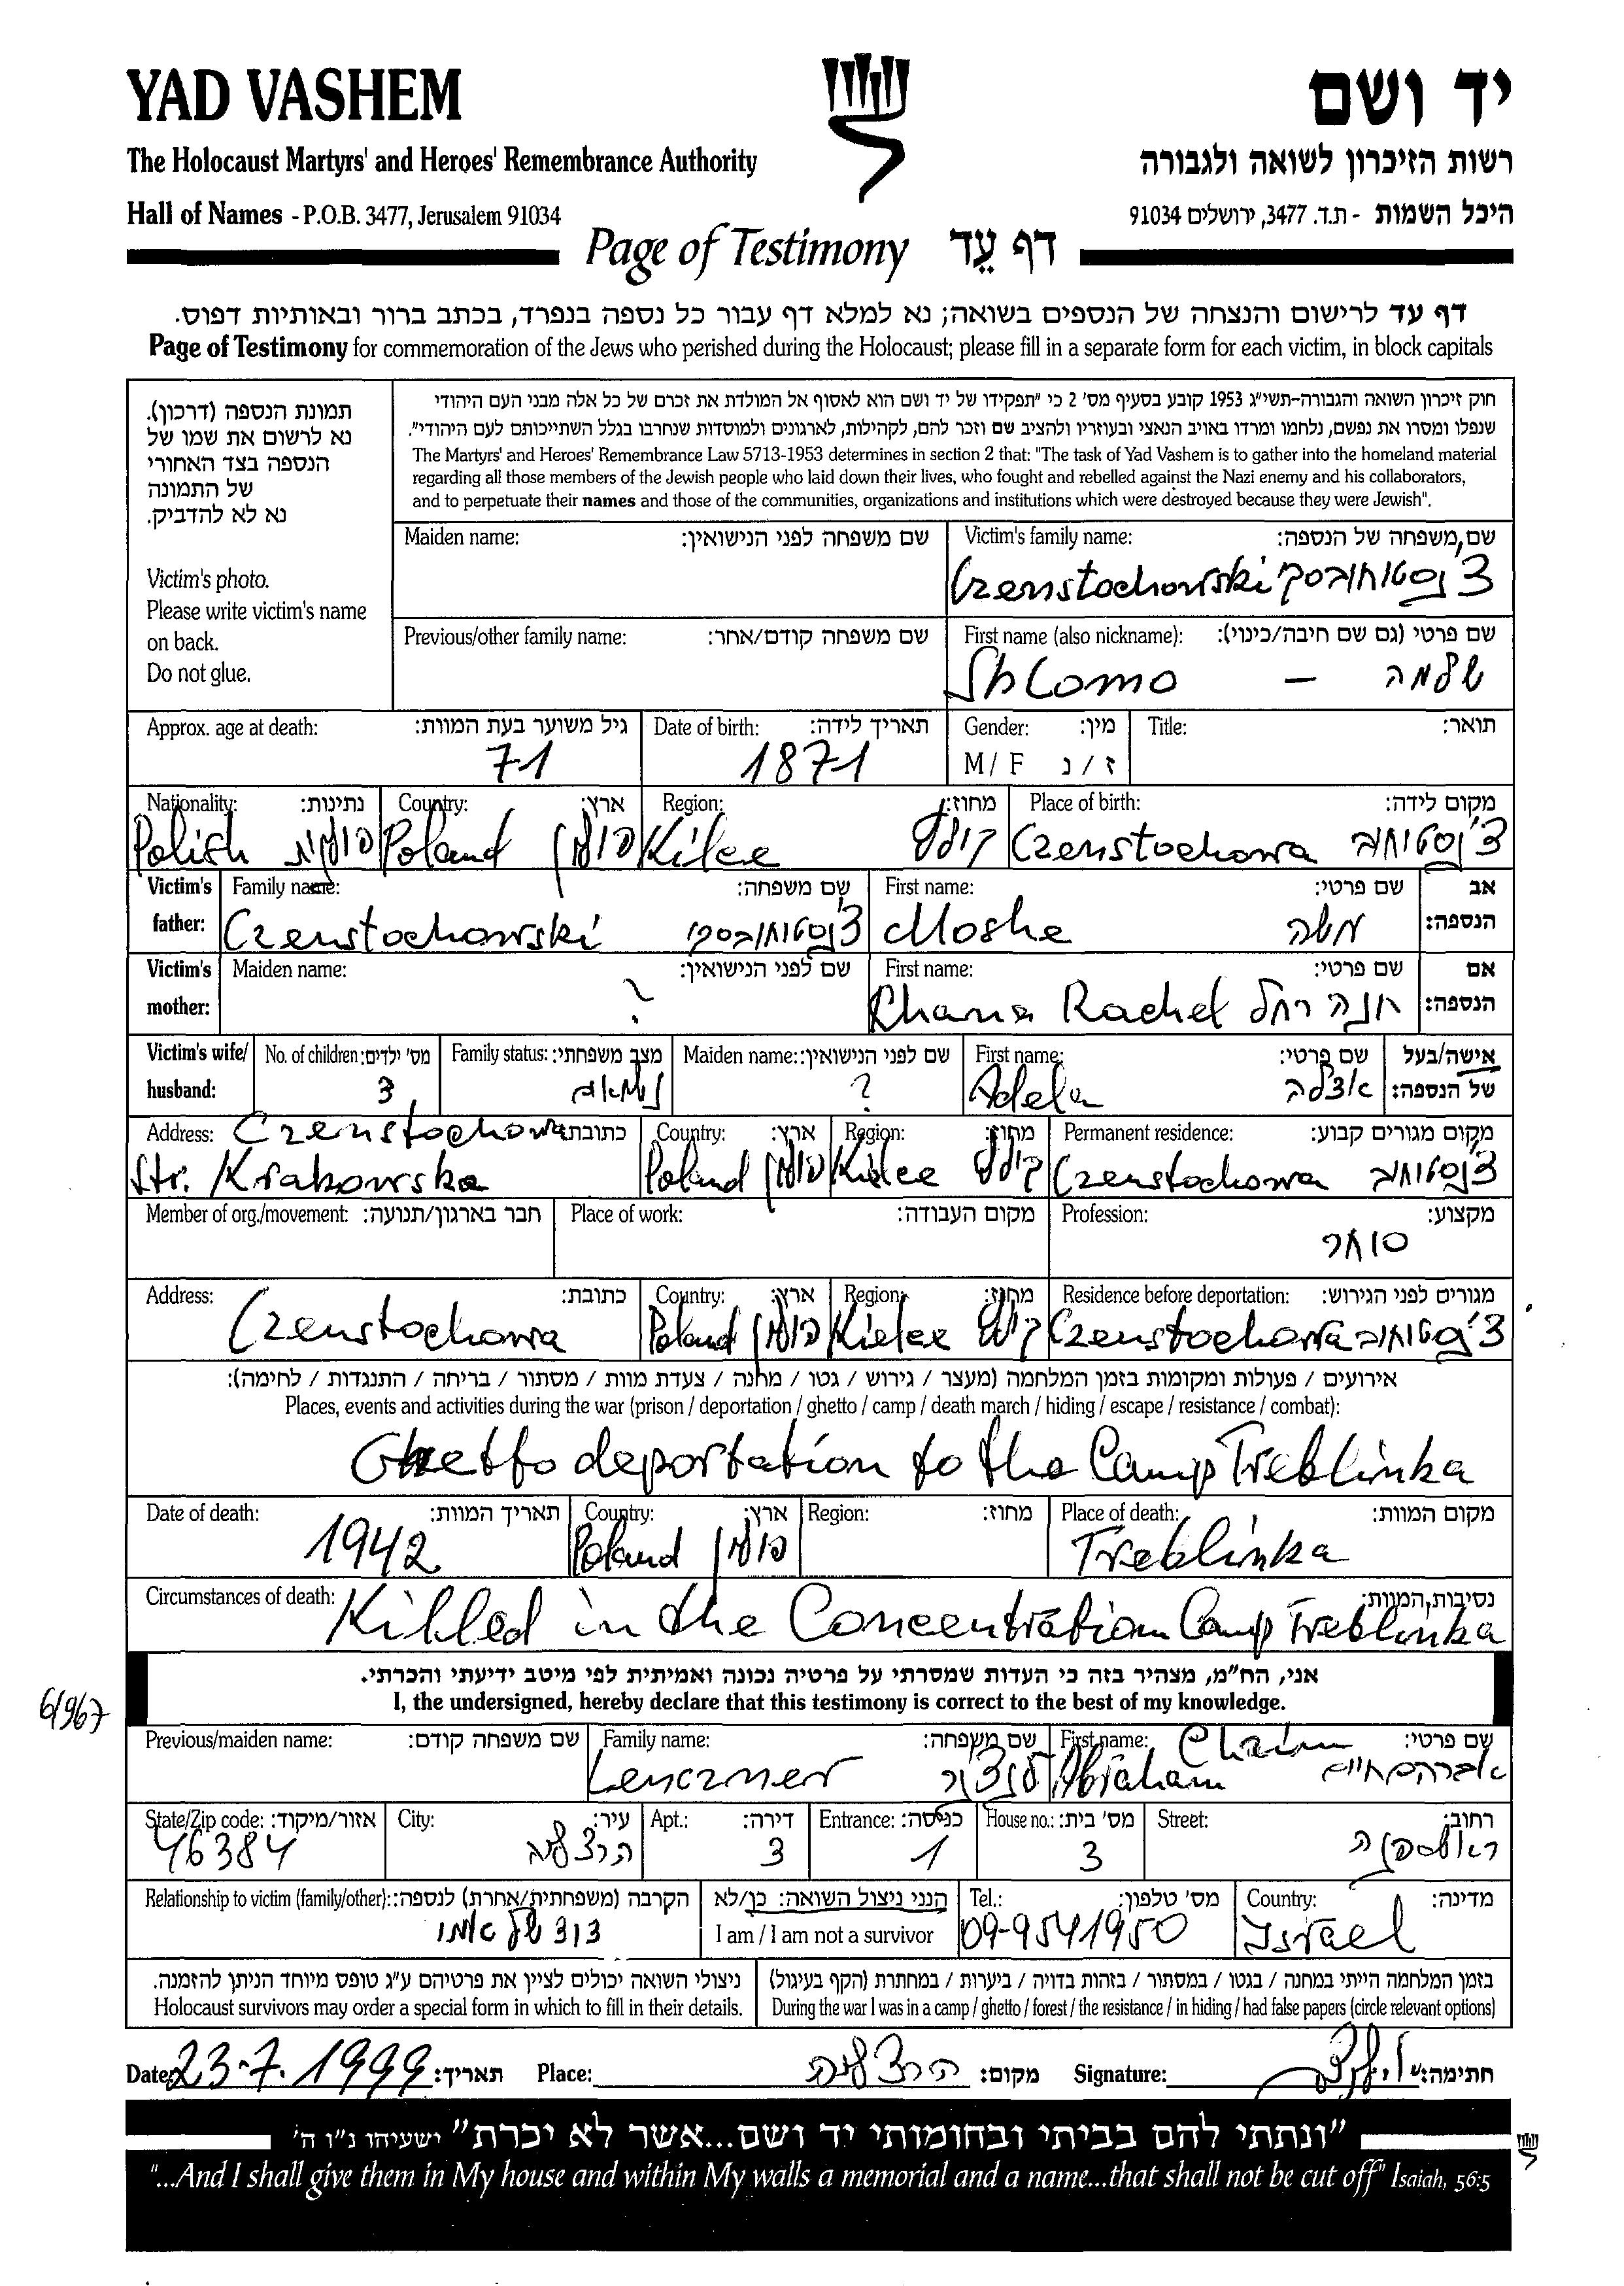 YAD VASHEM
יד ושם
The Holocaust Martyrs' and Heroes' Remembrance Authority
רשות הזיכרון לשואה ולגבורה
Hall of Names - P.O.B. 3477, Jerusalem 91034
היכל השמות - ת.ד. 3477, ירושלים 91034
Page of Testimony דף עֵד
דף עד לרישום והנצחה של הנספים בשואה; נא למלא דף עבור כל נספה בנפרד, בכתב ברור ובאותיות דפוס.
Page of Testimony for commemoration of the Jews who perished during the Holocaust; please fill in a separate form for each victim, in block capitals
תמונת הנספה (דרכון).
נא לרשום את שמו של
הנספה בצד האחורי
של התמונה
נא לא להדביק.
Victim's photo.
Please write victim's name
on back.
Do not glue.
חוק זיכרון השואה והגבורה-תשי"ג 1953 קובע בסעיף מס' 2 כי "תפקידו של יד ושם הוא לאסוף אל המולדת את זכרם של כל אלה מבני העם היהודי
שנפלו ומסרו את נפשם, נלחמו ומרדו באויב הנאצי ובעוזריו ולהציב שם וזכר להם, לקהילות, לארגונים ולמוסדות שנחרבו בגלל השתייכותם לעם היהודי".
The Martyrs' and Heroes' Remembrance Law 5713-1953 determines in section 2 that: "The task of Yad Vashem is to gather into the homeland material
regarding all those members of the Jewish people who laid down their lives, who fought and rebelled against the Nazi enemy and his collaborators,
and to perpetuate their names and those of the communities, organizations and institutions which were destroyed because they were Jewish".
Maiden name: שם משפחה לפני הנישואין:
Victim's family name: שם משפחה של הנספה:
Czenstochowski צ'נסטוחובסקי
Previous/other family name: שם משפחה קודם/אחר:
First name (also nickname): שם פרטי (גם שם חיבה/כינוי):
Shlomo - שלמה
Approx. age at death: גיל משוער בעת המוות:
71
Date of birth: תאריך לידה:
1871
Gender: מין:
M / F ז / נ
Title: תואר:
Nationality: נתינות:
Polish פולנית
Country: ארץ:
Poland פולין
Region: מחוז:
Kilce קילצ
Place of birth: מקום לידה:
Czenstochowa צ'נסטוחוב
Victim's father:
Family name: שם משפחה:
Czenstochowski צ'נסטוחובסקי
First name: שם פרטי:
Moshe משה
אב הנספה:
Victim's mother:
Maiden name: שם לפני הנישואין:
?
First name: שם פרטי:
Chana Rachel חנה רחל
אם הנספה:
Victim's wife/ husband:
No. of children: מס' ילדים:
3
Family status: מצב משפחתי:
נשוא
Maiden name: שם לפני הנישואין:
?
First name: שם פרטי:
Adela אדלה
אישה/בעל של הנספה:
Address: כתובת:
Czenstochowa
Str. Krakowska
Country: ארץ:
Poland פולין
Region: מחוז:
Kielce קילצ
Permanent residence: מקום מגורים קבוע:
Czenstochowa צ'נסטוחוב
Member of org./movement: חבר בארגון/תנועה:
Place of work: מקום העבודה:
Profession: מקצוע:
סוחר
Address: כתובת:
Czenstochowa
Country: ארץ:
Poland פולין
Region: מחוז:
Kielce קילצ
Residence before deportation: מגורים לפני הגירוש:
Czenstochowa צ'נסטוחוב
אירועים / פעולות ומקומות בזמן המלחמה (מעצר / גירוש / גטו / מחנה / צעדת מוות / מסתור / בריחה / התנגדות / לחימה):
Places, events and activities during the war (prison / deportation / ghetto / camp / death march / hiding / escape / resistance / combat):
Ghetto deportation to the Camp Treblinka
Date of death: תאריך המוות:
1942
Country: ארץ:
Poland פולין
Region: מחוז:
Place of death: מקום המוות:
Treblinka
Circumstances of death: נסיבות המוות:
Killed in the Concentration Camp Treblinka
אני, הח"מ, מצהיר בזה כי העדות שמסרתי על פרטיה נכונה ואמיתית לפי מיטב ידיעתי והכרתי.
I, the undersigned, hereby declare that this testimony is correct to the best of my knowledge.
6/967
Previous/maiden name: שם משפחה קודם:
Family name: שם משפחה:
Lenczner לנצ'נר
First name: שם פרטי:
Chaim
Abraham אברהם חיים
State/Zip code: אזור/מיקוד:
46384
City: עיר:
הרצליה
Apt.: דירה:
3
Entrance: כניסה:
1
House no.: מס' בית:
3
Street: רחוב:
Relationship to victim (family/other): הקרבה (משפחתית/אחרת) לנספה:
דוד של אמו
הנני ניצול השואה: כן/לא
I am / I am not a survivor
Tel.: מס' טלפון:
09-9541950
Country: מדינה:
Israel
ניצולי השואה יכולים לציין את פרטיהם ע"ג טופס מיוחד הניתן להזמנה.
Holocaust survivors may order a special form in which to fill in their details.
בזמן המלחמה הייתי במחנה / בגטו / במסתור / בזהות בדויה / ביערות / במחתרת (הקף בעיגול)
During the war I was in a camp / ghetto / forest / the resistance / in hiding / had false papers (circle relevant options)
Date: 23.7.1999 תאריך: Place: הרצליה מקום: Signature: חתימה:
"ונתתי להם בביתי ובחומותי יד ושם...אשר לא יכרת" ישעיהו נ"ו ה'
"...And I shall give them in My house and within My walls a memorial and a name...that shall not be cut off" Isaiah, 56:5